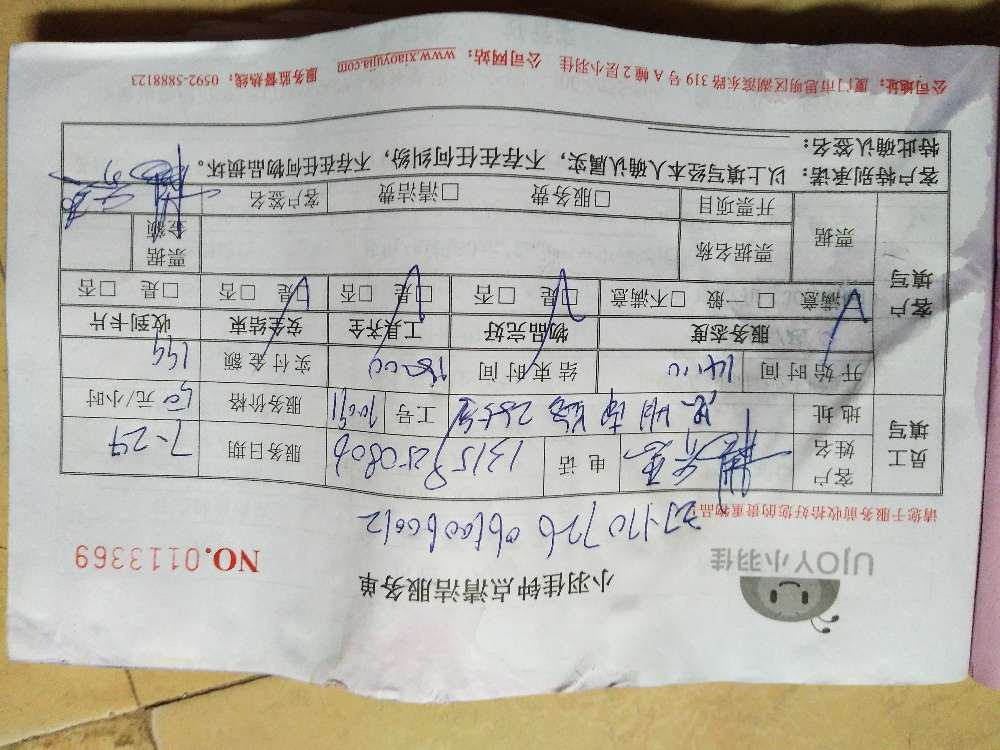 UJOY小羽佳
小羽佳钟点清洁服务单
NO.0113369
请您于服务前收拾好您的贵重物品
员工填写
客户姓名 电话 服务日期 7-29
地址 工号 服务价格 50元/小时
开始时间 14:00 结束时间 18:00 实付金额 199
客户填写
服务态度 物品完好 工具齐全 安全结束 收到卡片
☑满意 □一般 □不满意 ☑是 □否 ☑是 □否 ☑是 □否 □是 □否
票据 票据名称 票据金额
开票项目 □服务费 □清洁费 客户签名
客户特别承诺：以上填写经本人确认属实，不存在任何纠纷，不存在任何物品损坏。
特此确认签名：
公司地址：厦门市思明区湖滨东路319号A幢2层小羽佳 公司网站：www.xiaoyujia.com 服务监督热线：0592-5888123